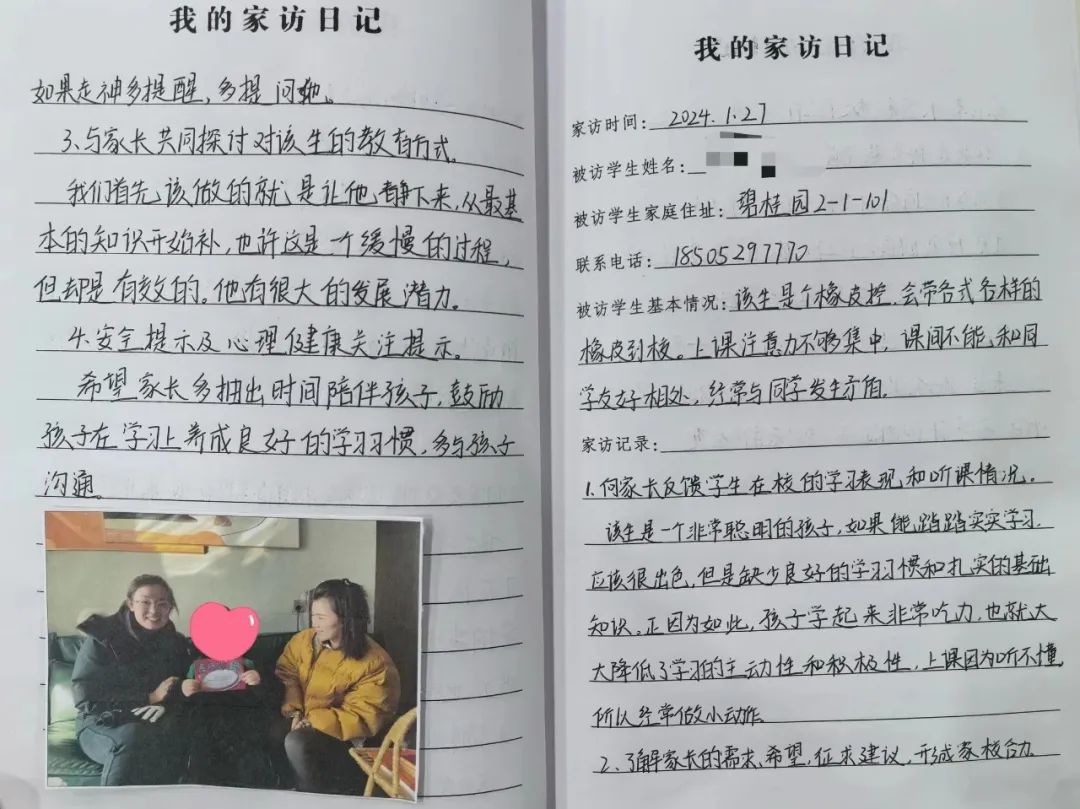 我的家访日记
如果走神多提醒，多提问她。
3、与家长共同探讨对该生的教育方式。
我们首先该做的就是让他静下来，从最基
本的知识开始补，也许这是一个缓慢的过程，
但却是有效的。他有很大的发展潜力。
4、安全提示及心理健康关注提示。
希望家长多抽出时间陪伴孩子，鼓励
孩子在学习上养成良好的学习习惯，多与孩子
沟通。
我的家访日记
家访时间：2024.1.27
被访学生姓名：
被访学生家庭住址：碧桂园2-1-101
联系电话：18505297770
被访学生基本情况：该生是个橡皮控，会带各式各样的
橡皮到校。上课注意力不够集中，课间不能和同
学友好相处，经常与同学发生矛盾。
家访记录：
1、向家长反馈学生在校的学习表现和听课情况。
该生是一个非常聪明的孩子，如果能踏踏实实学习，
应该很出色，但是缺少良好的学习习惯和扎实的基础
知识。正因为如此，孩子学起来非常吃力，也就大
大降低了学习的主动性和积极性，上课因为听不懂，
所以经常做小动作。
2、了解家长的需求、希望，征求建议，形成家校合力。